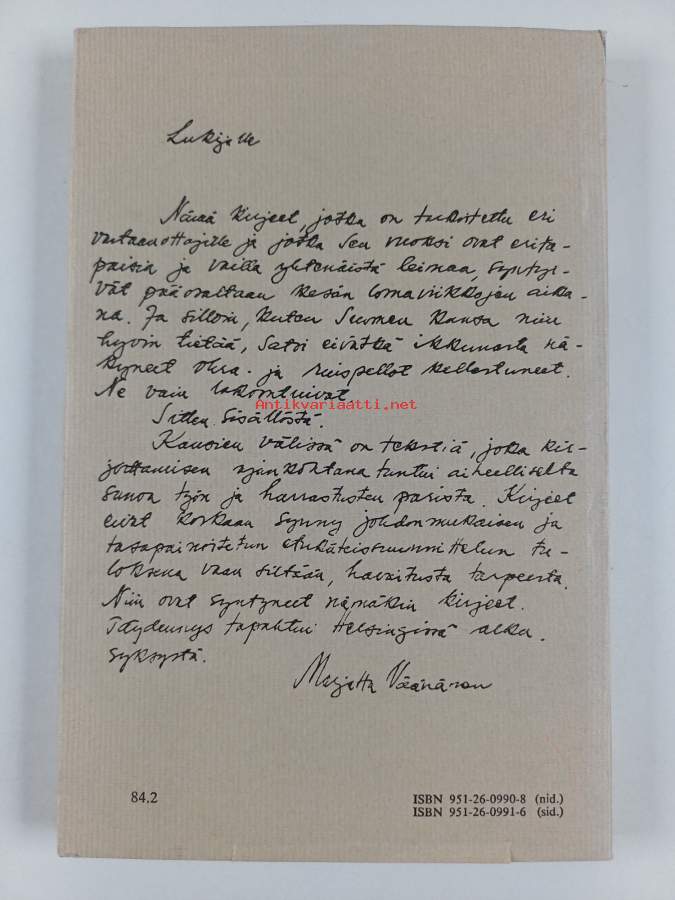 Lukijalle
Nämä kirjeet, jotka on tarkoitettu eri
vastaanottajille ja jotka sen vuoksi ovat erita-
paisia ja vailla yhtenäistä leimaa, synty-
vät pääosaltaan kesän lomaviikkojen aika-
na. Ja silloin, kuten Suomen kansa niin
hyvin tietää, satoi eivätkä ikkunasta nä-
kyneet ohra- ja ruispellot kellastuneet.
Ne vain lakoontuivat.
Antikvariaatti.net
Sitten sisällöstä.
Kansien välissä on tekstiä, joka kir-
joittamisen ajankohtana tuntui aiheelliselta
sanoa työn ja harrastusten parista. Kirjeet
eivät koskaan synny johdonmukaisen ja
tasapainoitetun etukäteissuunnittelun tu-
loksena vaan siltään, havaitusta tarpeesta.
Niin ovat syntyneet nämäkin kirjeet.
Täydennys tapahtui Helsingissä alku-
syksystä.
Marjatta Väänänen
84.2
ISBN 951-26-0990-8 (nid.)
ISBN 951-26-0991-6 (sid.)